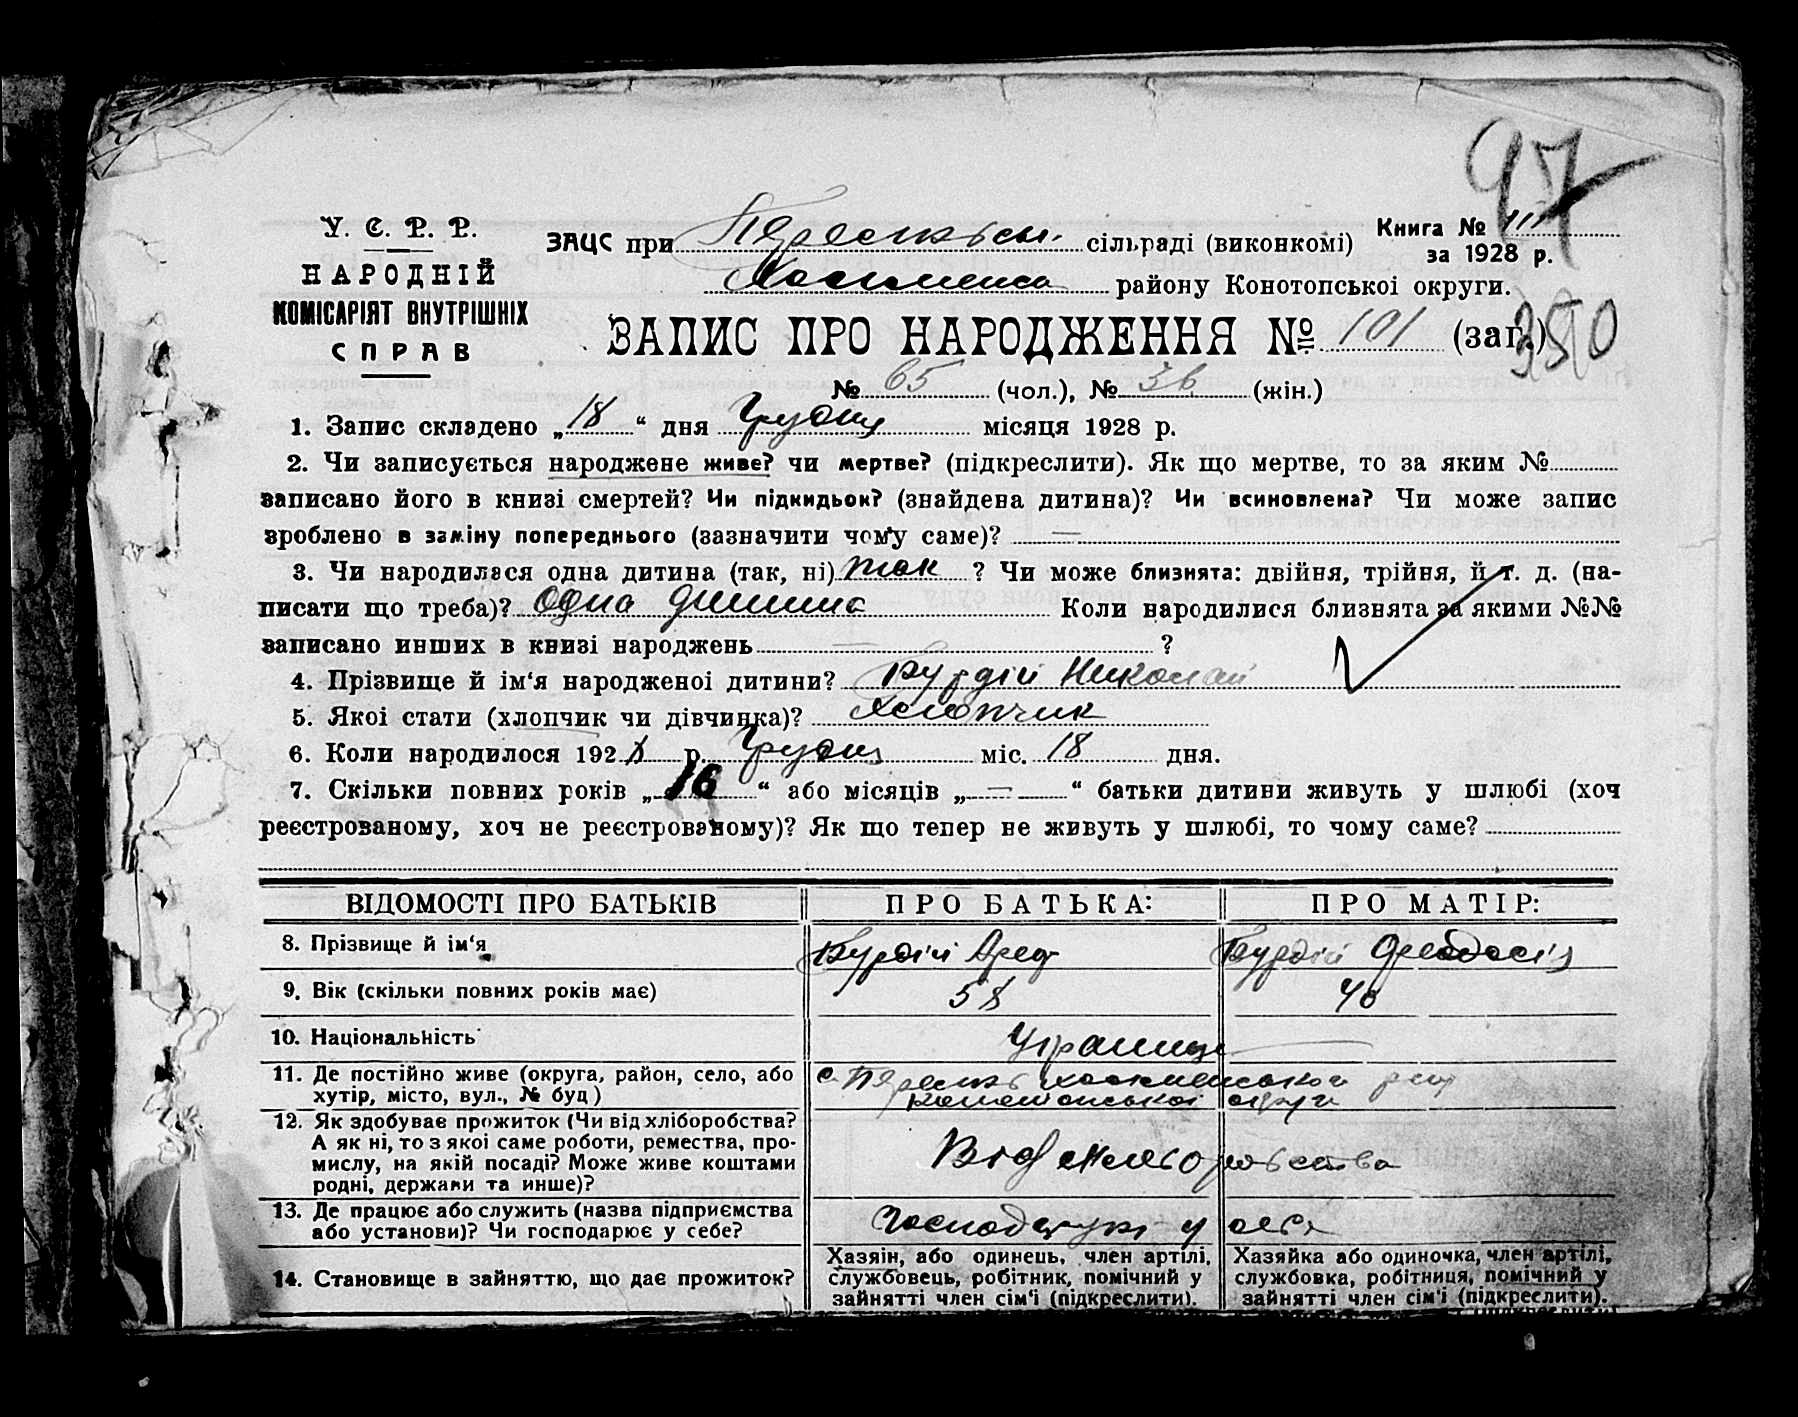 97
У. С. Р. Р.
НАРОДНІЙ
КОМІСАРІЯТ ВНУТРІШНІХ
СПРАВ
ЗАЦС при сільраді (виконкомі)
району Конотопськоі округи.
Книга № III
за 1928 р.
ЗАПИС ПРО НАРОДЖЕННЯ № 101 (заг.)
350
№ 65 (чол.), № 36 (жін.)
1. Запис складено „18“ дня Грудня місяця 1928 р.
2. Чи записується народжене живе? чи мертве? (підкреслити). Як що мертве, то за яким №
записано його в книзі смертей? Чи підкидьок? (знайдена дитина)? Чи всиновлена? Чи може запис
зроблено в заміну попереднього (зазначити чому саме)? —
3. Чи народилася одна дитина (так, ні) так ? Чи може близнята: двійня, трійня, й т. д. (на-
писати що треба)? одна дитина Коли народилися близнята за якими №№
записано инших в книзі народжень — ?
4. Прізвище й ім‘я народженоі дитини? Бурдій Николай
5. Якоі стати (хлопчик чи дівчинка)? Хлопчик
6. Коли народилося 1928 р. Грудня міс. 18 дня.
7. Скільки повних років „16“ або місяців „—“ батьки дитини живуть у шлюбі (хоч
реєстрованому, хоч не реєстрованому)? Як що тепер не живуть у шлюбі, то чому саме?
ВІДОМОСТІ ПРО БАТЬКІВ ПРО БАТЬКА: ПРО МАТІР:
8. Прізвище й ім‘я Бурдій Бурдій Феодосія
9. Вік (скільки повних років має) 58 40
10. Національність Украінці
11. Де постійно живе (округа, район, село, або
хутір, місто, вул., № буд)
с.
Конотопськоі округи
12. Як здобуває прожиток (Чи від хліборобства?
А як ні, то з якоі саме роботи, ремества, про-
мислу, на якій посаді? Може живе коштами
родні, держави та инше)?
Від хліборобства
13. Де працює або служить (назва підприємства
або установи)? Чи господарює у себе?
у себя
14. Становище в зайняттю, що дає прожиток?
Хазяїн, або одинець, член артілі,
службовець, робітник, помічний у
зайнятті член сім‘і (підкреслити).
Хазяйка або одиночка, член артілі,
службовка, робітниця, помічний у
зайнятті член сім‘і (підкреслити).